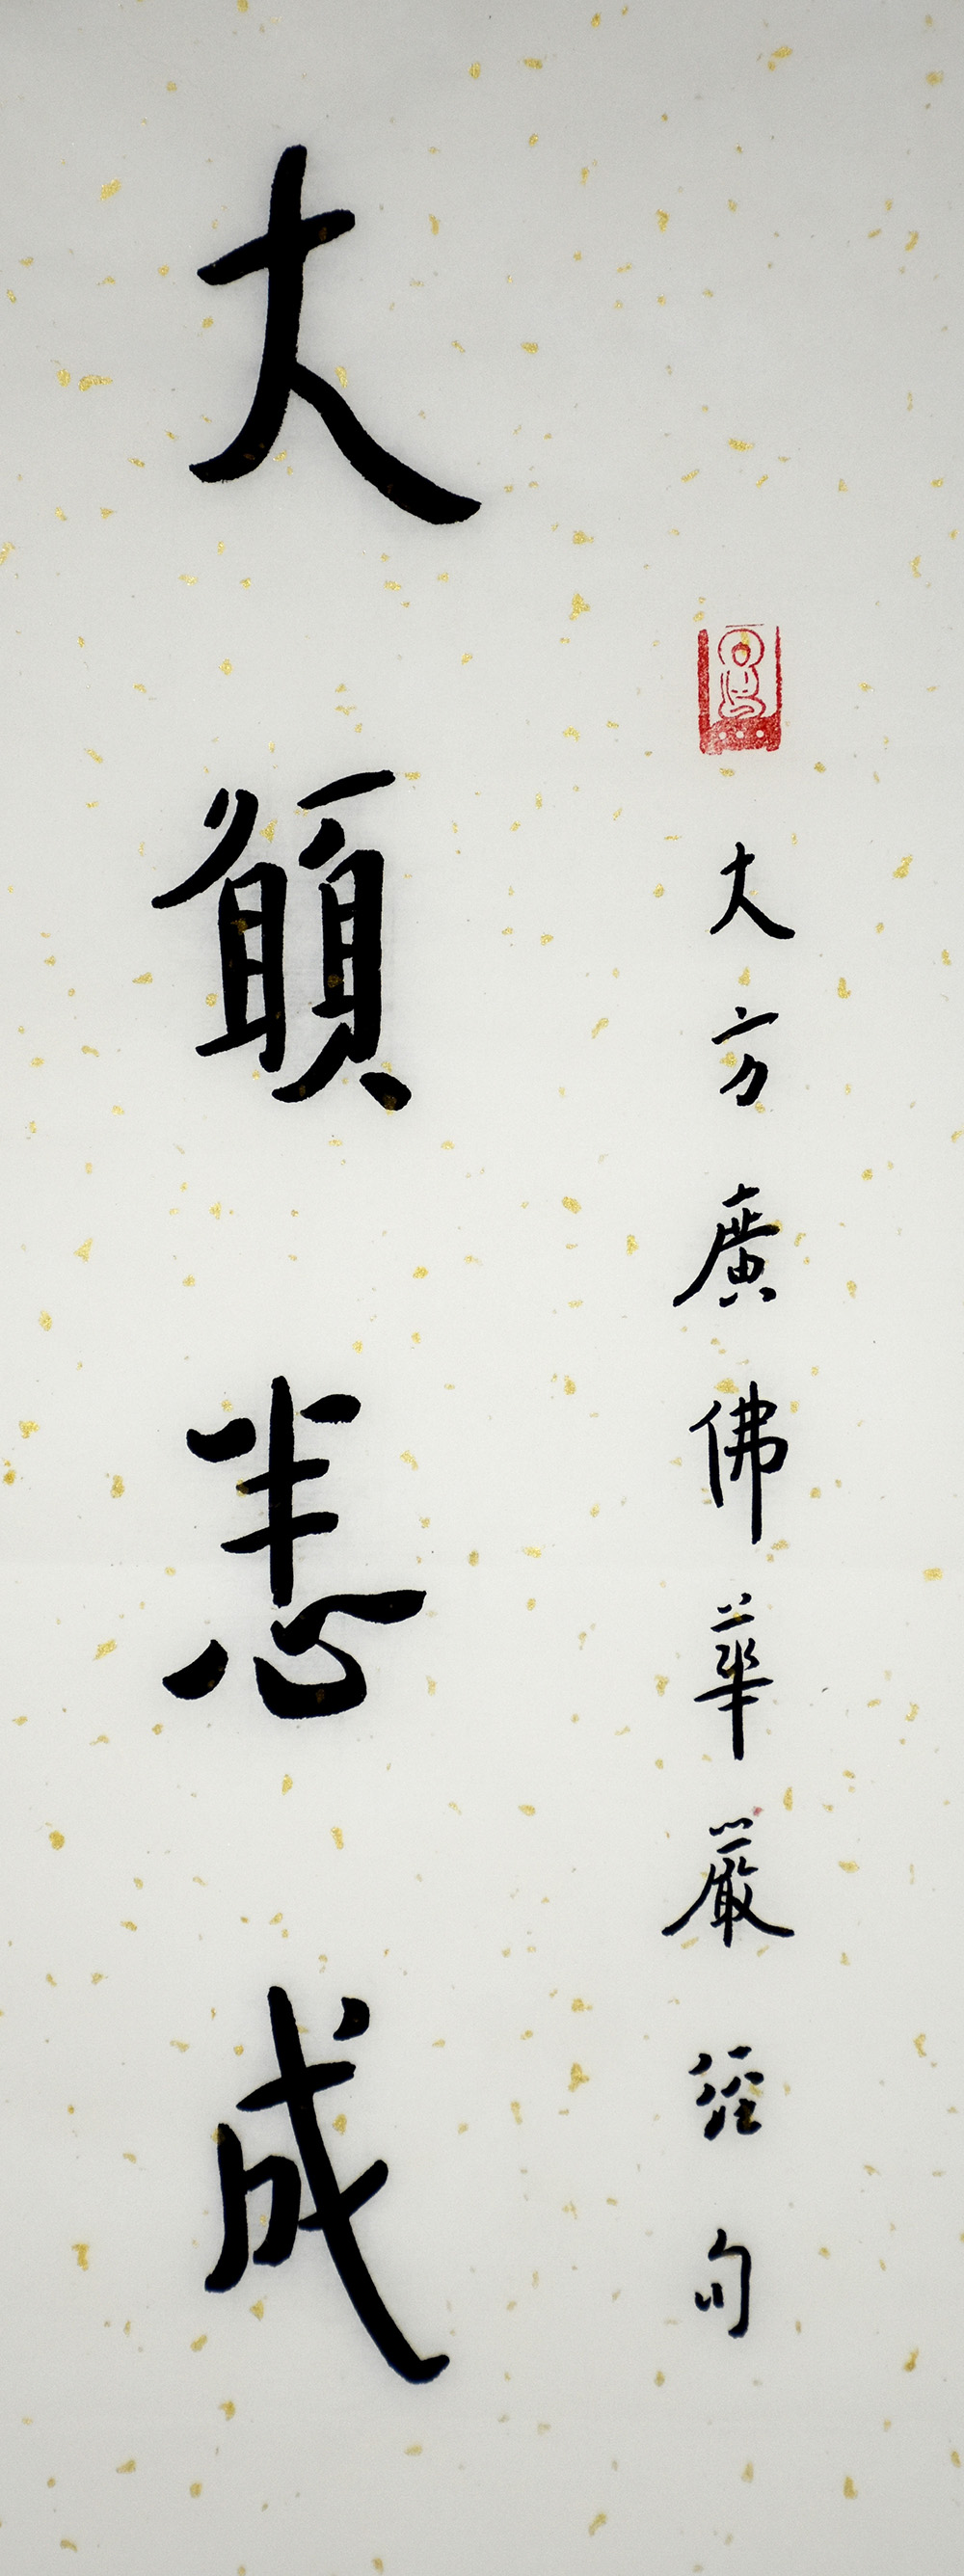 大方廣佛華嚴經句
大願悉成